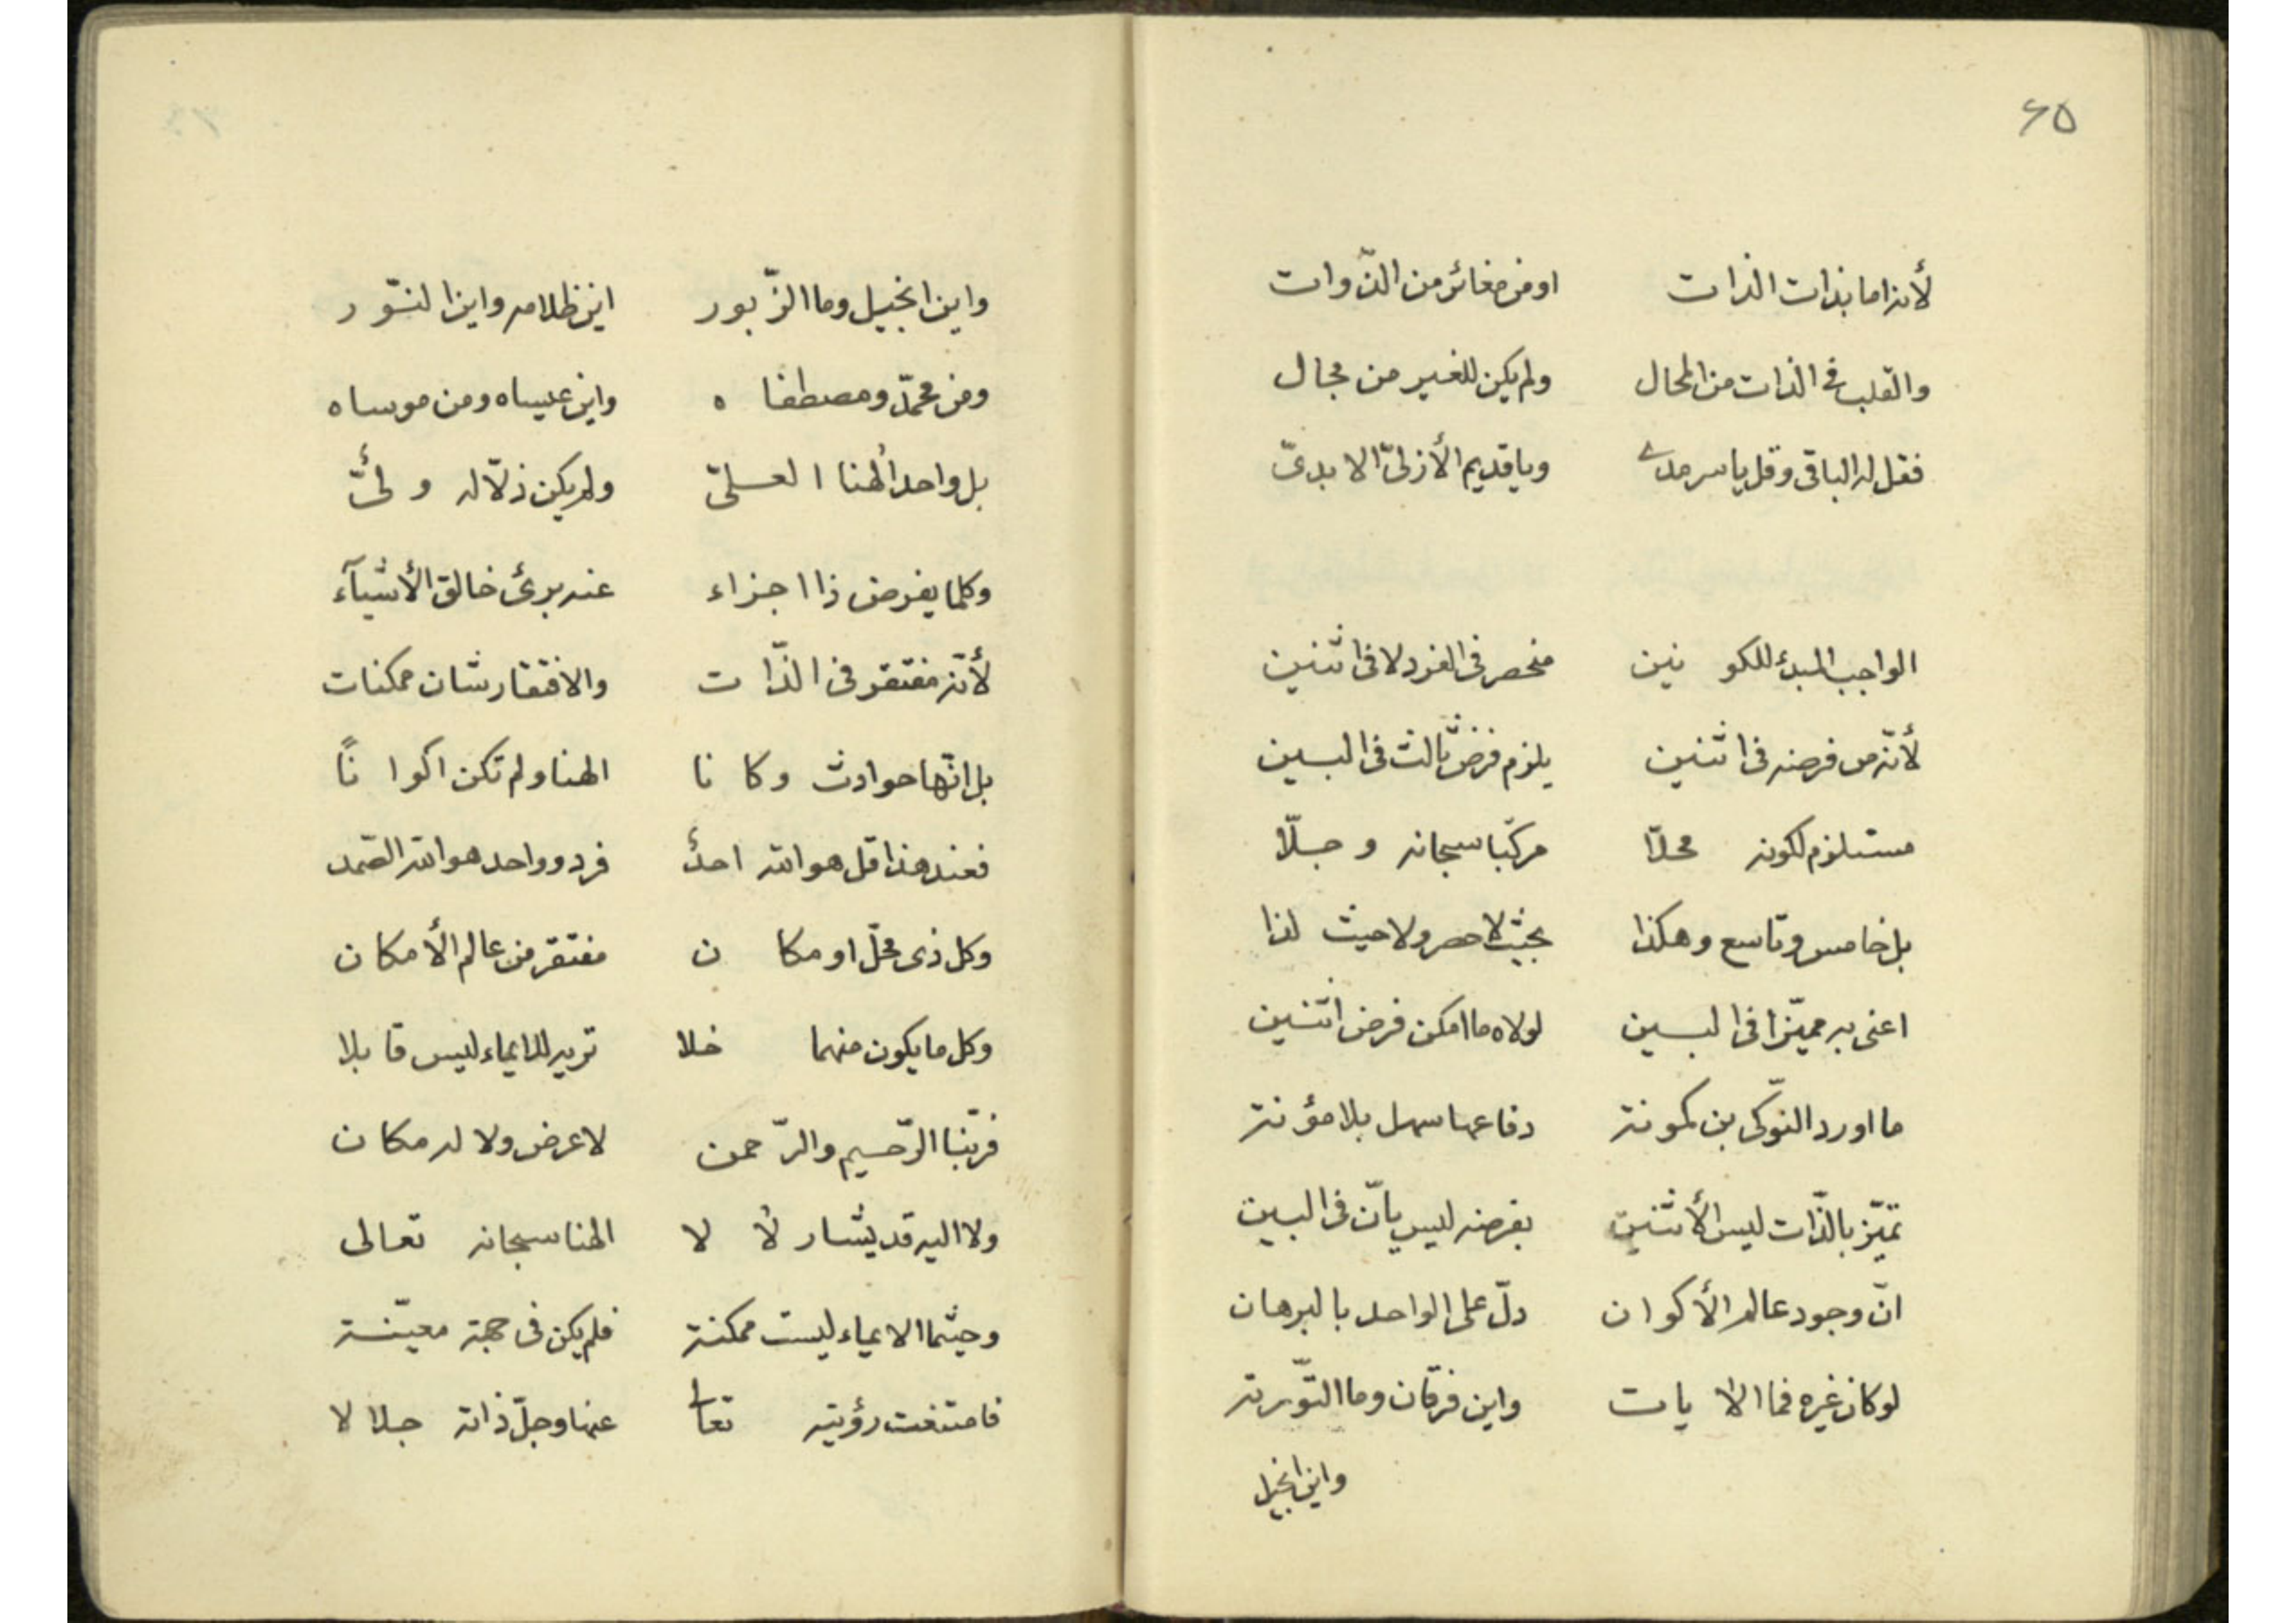 ۶۵
لأنه اما بذات الذات اومن مغائر من الذّوات
والقلب فی الذات من المحال ولم یکن للغیر من مجال
فقل له الباقی وقل یا سرمدی ویا قدیم الأزلیّ الابدیّ
الواجب المبدء للکونین منحصر فی الفرد لا فی اثنین
لأنّه من فرضه فی اثنین یلزم فرض ثالث فی البین
مستلزم لکونه محلّا مرکّبا سبحانه وجلّا
بل خامس وتاسع وهکذا بحیث لا حصر ولا حیث لذا
اعنی به ممیّزا فی البین لولاه ما امکن فرض اثنین
ما اورد النّوکی بن کمونة دفاعها سهل بلا مؤنة
تمیّز بالذّات لیس الأثنین بفرضه لیس بانّ فی البین
انّ وجود عالم الأکوان دلّ علی الواحد بالبرهان
لوکان غیره فما الآیات واین فرقان وما التّوریة
واین انجیل
واین انجیل وما الزّبور این ظلامه واین النّور
ومن محمّد ومصطفاه واین عیساه ومن موساه
بل واحد ألهنا العلیّ ولم یکن ذلّا له ولیّ
وکلما یفرض ذا اجزاء عنه برئ خالق الأشیآء
لأنّه مفتقر فی الذّات والافتقار شان ممکنات
بل انّها حوادث وکانا الهنا ولم تکن اکوانًا
فعند هذا قل هو الله احد فرد وواحد هو الله الصّمد
وکل ذی محلّ او مکان مفتقر من عالم الأمکان
وکل ما یکون منهما خلا تریه للایماء لیس قابلا
فربّنا الرّحیم والرّحمن لا عرض ولا له مکان
ولا الیه قد یشار لأ لا الهنا سبحانه تعالی
وحیثما الایماء لیست ممکنة فلم یکن فی جهة معیّنة
فامتنعت رؤیته تعالی عنها وجلّ ذاته جلالا